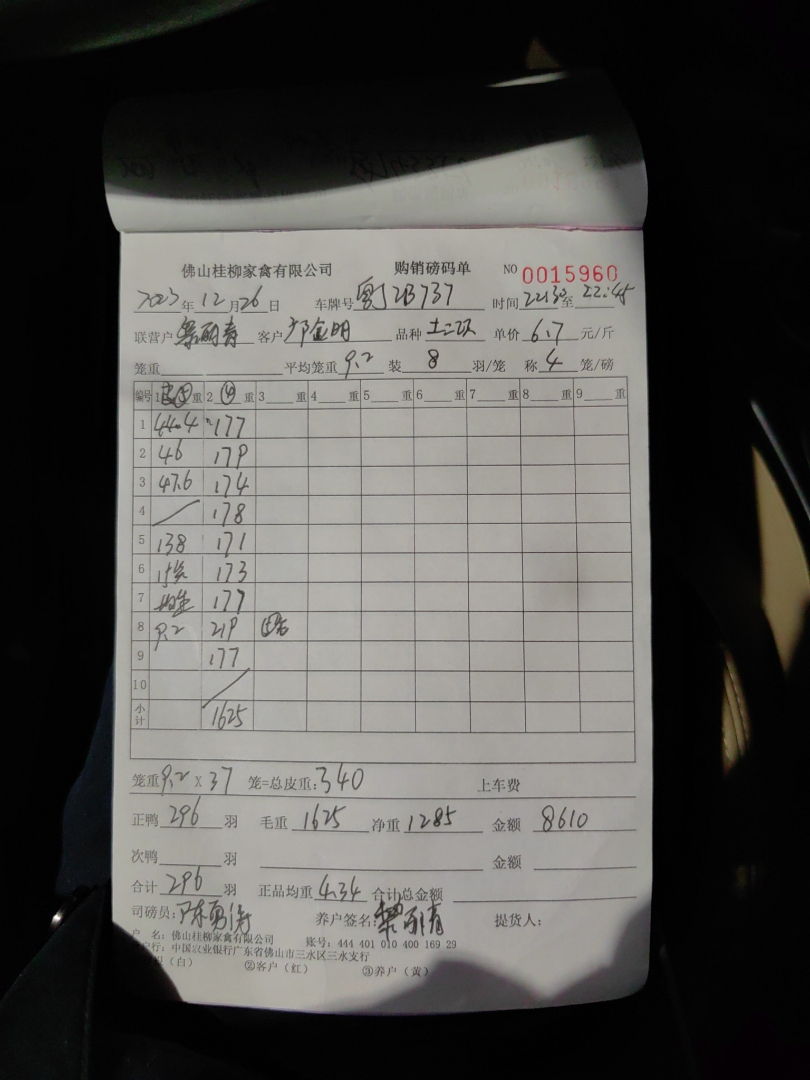 佛山桂柳家禽有限公司 购销磅码单 NO 0015960
2023年12月26日 车牌号 粤J2B737 时间 2230至22:45
联营户 客户 邝金明 品种 土二 单价 6.7 元/斤
笼重 平均笼重 9.2 装 8 羽/笼 称 4 笼/磅
编号 1 重 2 ④ 重 3 重 4 重 5 重 6 重 7 重 8 重 9 重
1 44.4 177
2 46 179
3 47.6 174
4 / 178
5 138 171
6 15笼 173
7 177
8 9.2 219 ⑤笼
9 177
10 /
小计 1625
笼重 9.2 X 37 笼=总皮重: 340 上车费
正鸭 296 羽 毛重 1625 净重 1285 金额 8610
次鸭 羽 金额
合计 296 羽 正品均重 4.34 合计总金额
司磅员: 陈勇涛 养户签名: 提货人:
户 名: 佛山桂柳家禽有限公司 账号: 444 401 010 400 169 29
户行: 中国农业银行广东省佛山市三水区三水支行
(白) ②客户(红) ③养户(黄)